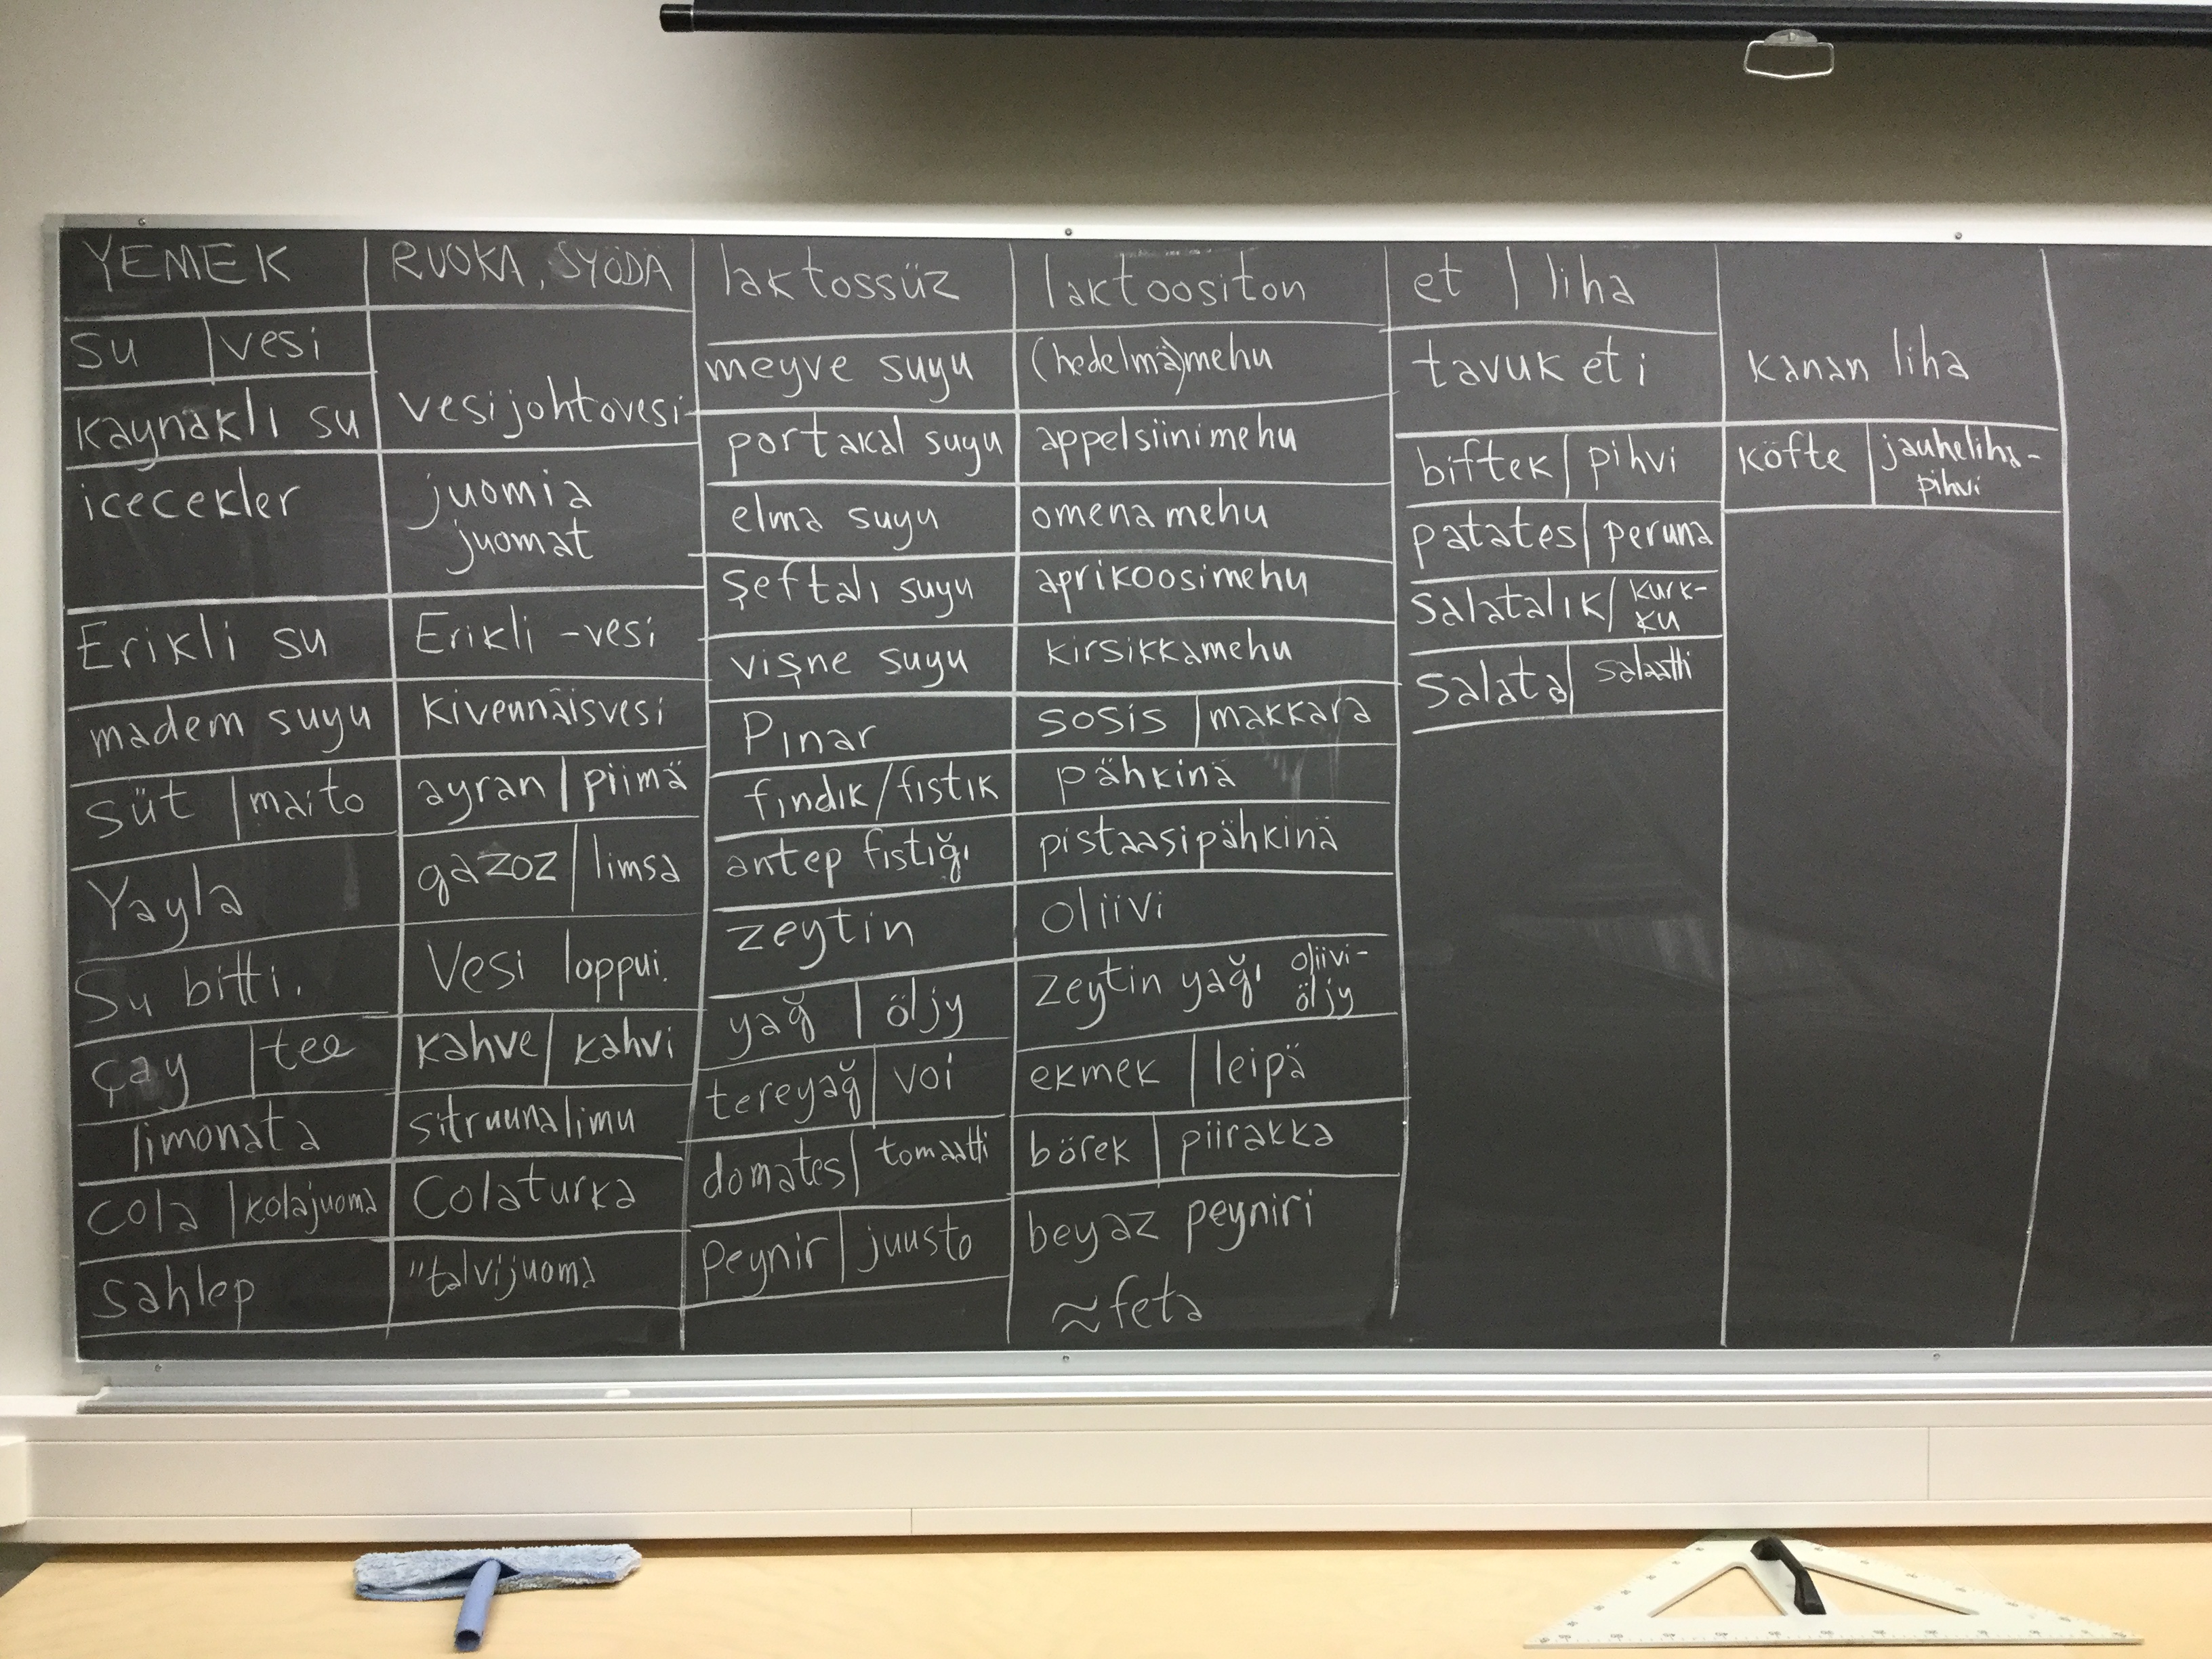 YEMEK | RUOKA, SYÖDÄ
su | vesi
kaynaklı su | vesijohtovesi
icecekler | juomia
juomat
Erikli su | Erikli -vesi
madem suyu | kivennäisvesi
süt | maito | ayran | piimä
Yayla | gazoz | limsa
Su bitti. | Vesi loppui.
çay | tee | kahve | kahvi
limonata | sitruunalimu
cola | kolajuoma | Colaturka
sahlep | "talvijuoma
laktossüz | laktoositon
meyve suyu | (hedelmä)mehu
portakal suyu | appelsiinimehu
elma suyu | omenamehu
şeftalı suyu | aprikoosimehu
vişne suyu | kirsikkamehu
Pınar | sosis | makkara
fındık/fıstık | pähkinä
antep fıstığı | pistaasipähkinä
zeytin | oliivi
yağ | öljy | zeytin yağı oliivi-
öljy
tereyağ | voi | ekmek | leipä
domates | tomaatti | börek | piirakka
peynir | juusto | beyaz peyniri
≈ feta
et | liha
tavuk eti | kanan liha
biftek | pihvi | köfte | jauheliha-
pihvi
patates | peruna
salatalık / kurk-
ku
salata | salaatti